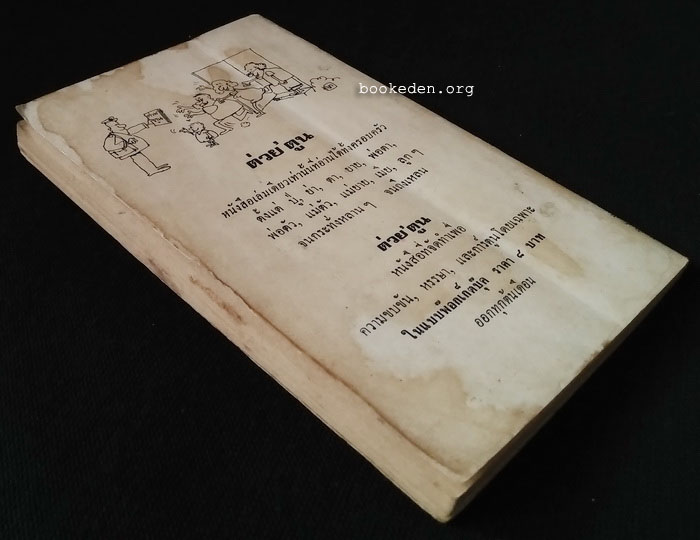 bookeden.org
ต่วย'ตูน
หนังสือเล่มเดียวเท่านั้นที่อ่านได้ทั้งครอบครัว
ตั้งแต่ ปู่, ย่า, ตา, ยาย, พ่อตา,
พ่อตัว, แม่ตัว, แม่ยาย, เมีย, ลูก ๆ
จนกระทั่งหลาน ๆ จนถึงเหลน
ต่วย'ตูน
หนังสือที่จัดทำเพื่อ
ความขบขัน, หรรษา, และการ์ตูนโดยเฉพาะ
ในแบบพ็อกเกตบุ๊ค ราคา ๘ บาท
ออกทุกต้นเดือน